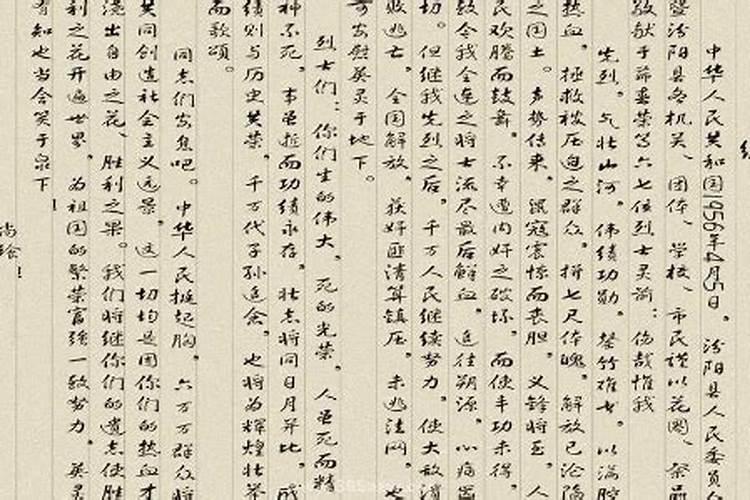 中华人民共和国1956年4月5日。汾阳县人民委员
暨汾阳县各机关、团体、学校、市民谨以花圈、祭品
敬献于 六七位烈士灵前：伤哉惟我
先烈。气壮山河。伟绩功勋。罄竹难书。以满腔
热血。拯救被压迫之群众。拼七尺体魄。解放已沦陷
之国土。声势传来。寇震惊而丧胆。义锋将至。人
民欢腾而鼓舞。不幸遭内奸之破坏。而使丰功未得。
致令我全连之将士流尽最后鲜血。追往溯源。心痛
切。但继我先烈之后。千万人民继续努力。使大敌
败逃亡。全国解放。获奸匪清算镇压。未逃法网。
慰英灵于地下。
烈士们：你们生的伟大。死的光荣。人虽死而精
神不死。事虽殂而功绩永存。壮志将同日月并比。
绩则与历史共荣。千万代子孙追念。也将为辉煌壮举
而歌颂。
同志们安息吧。中华人民挺起胸。六万万群众将
共同创造社会主义远景。这一切均是因你们的热血才
浇出自由之花、胜利之果。我们将继你们的遗志使胜
利之花开遍世界。为祖国的繁荣富强一致努力。英灵
有知也当含笑于泉下！
尚飨！